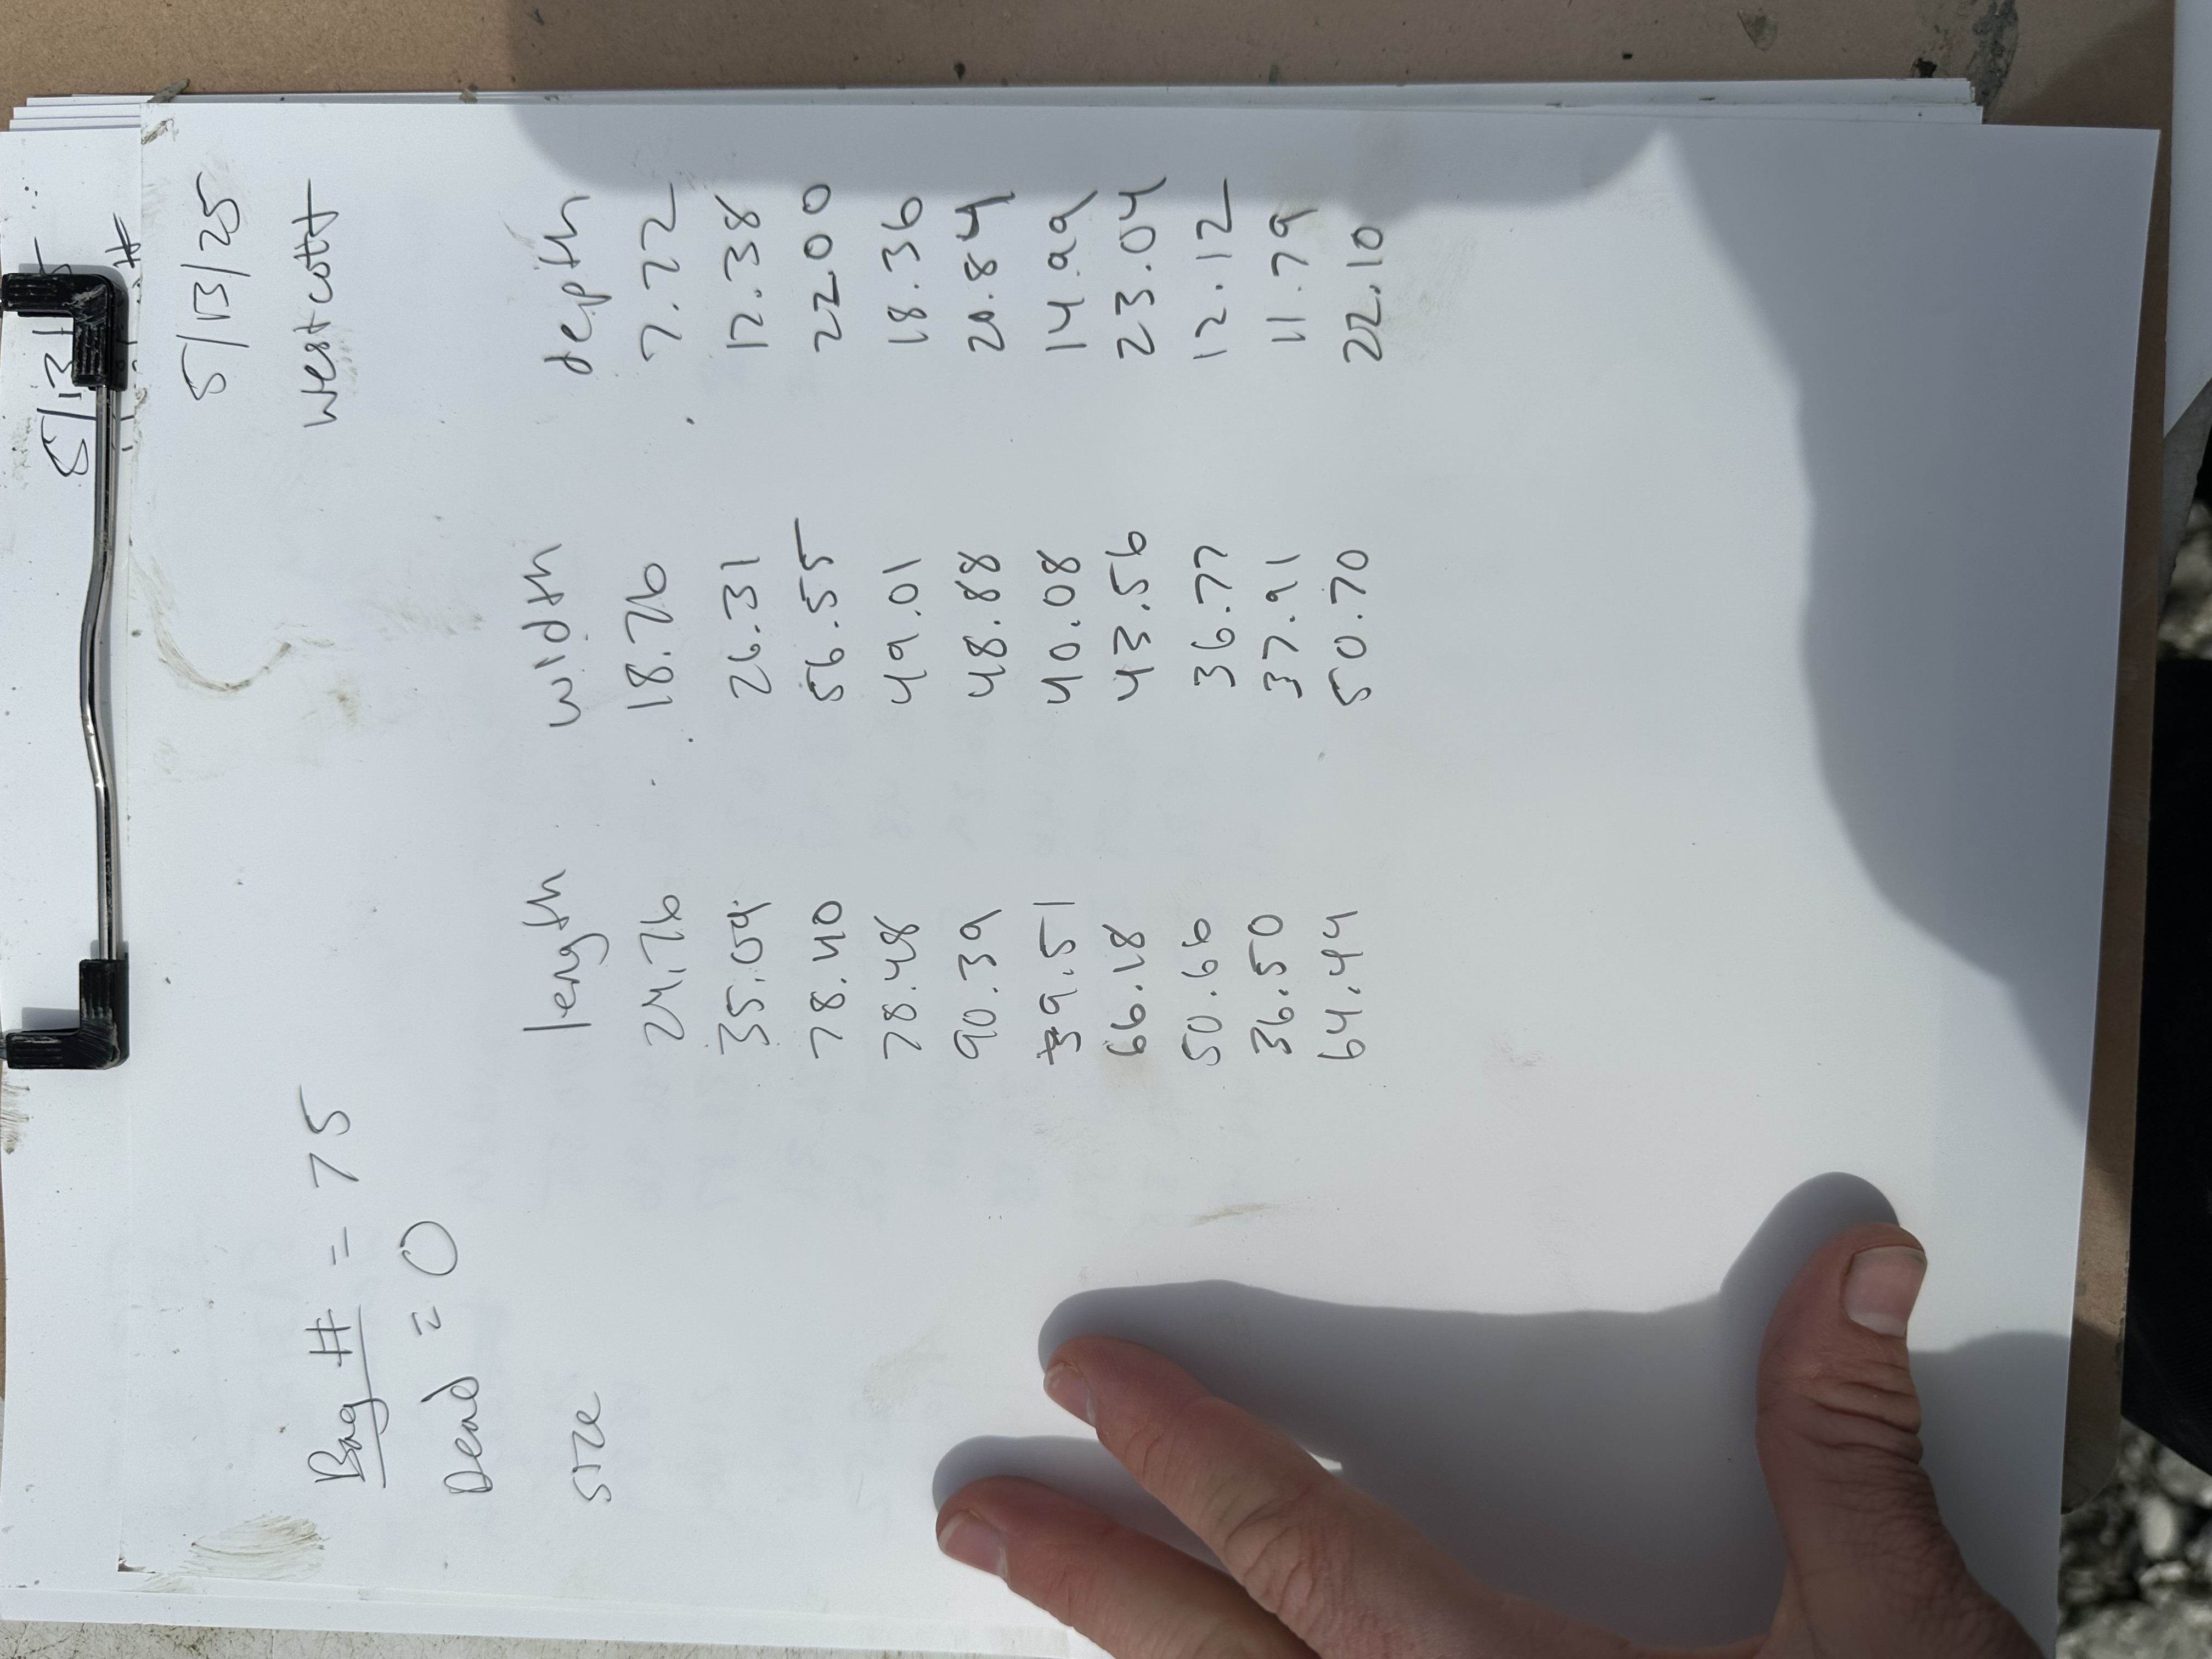 5/13/25
5/13/25
Westcott
Bag # = 75
Dead = 0
size length width depth
24.76 18.76 7.72
35.09 26.31 12.38
78.40 56.55 22.00
78.48 49.01 18.36
90.39 48.88 20.84
39.51 40.08 14.99
66.18 43.56 23.04
50.66 36.77 12.12
36.50 37.91 11.79
64.44 50.70 22.10